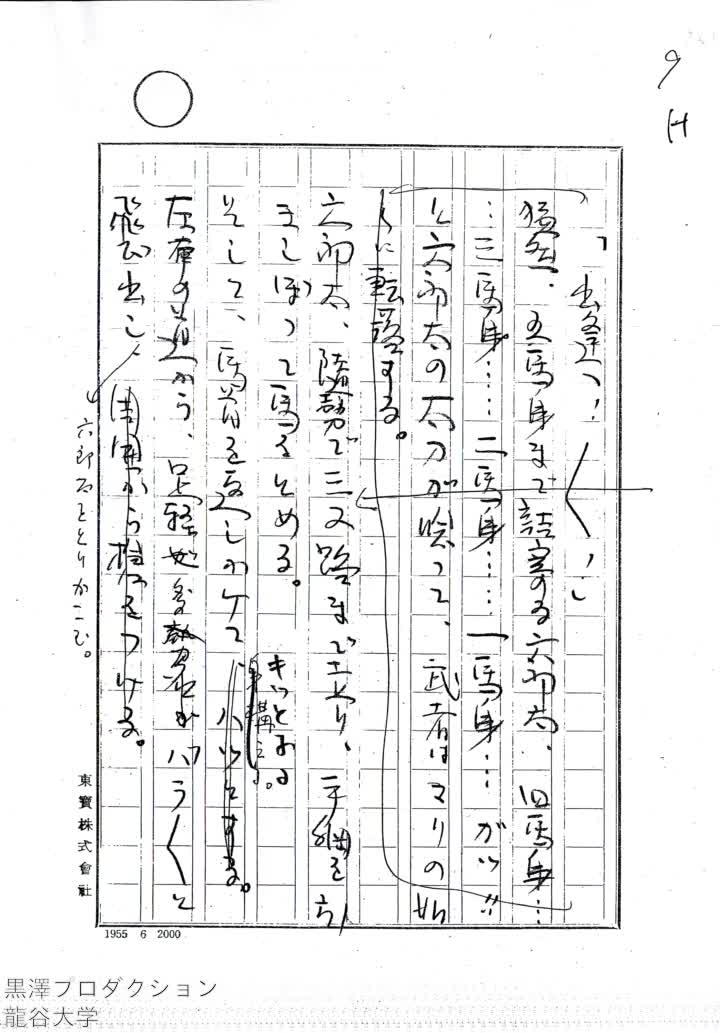 9
H
「出逢え！〱！」
猛然、五馬身まで詰寄る六郎太、四馬身…
…三馬身……二馬身……一馬身…ガッ!!
と六郎太の太刀が唸って、武者はマリの如
くに転落する。
六郎太、隨勢で三叉路まで走り、手綱を引
きしぼって馬をとめる。
キッとなる
そして、馬首を返しかけて、ハッとする。
左右の道から、足軽共多勢がバラ〱と
飛出し、周囲から槍をつける。
六郎太をとりかこむ。
東寶株式會社
1955 6 2000
黒澤プロダクション
龍谷大学